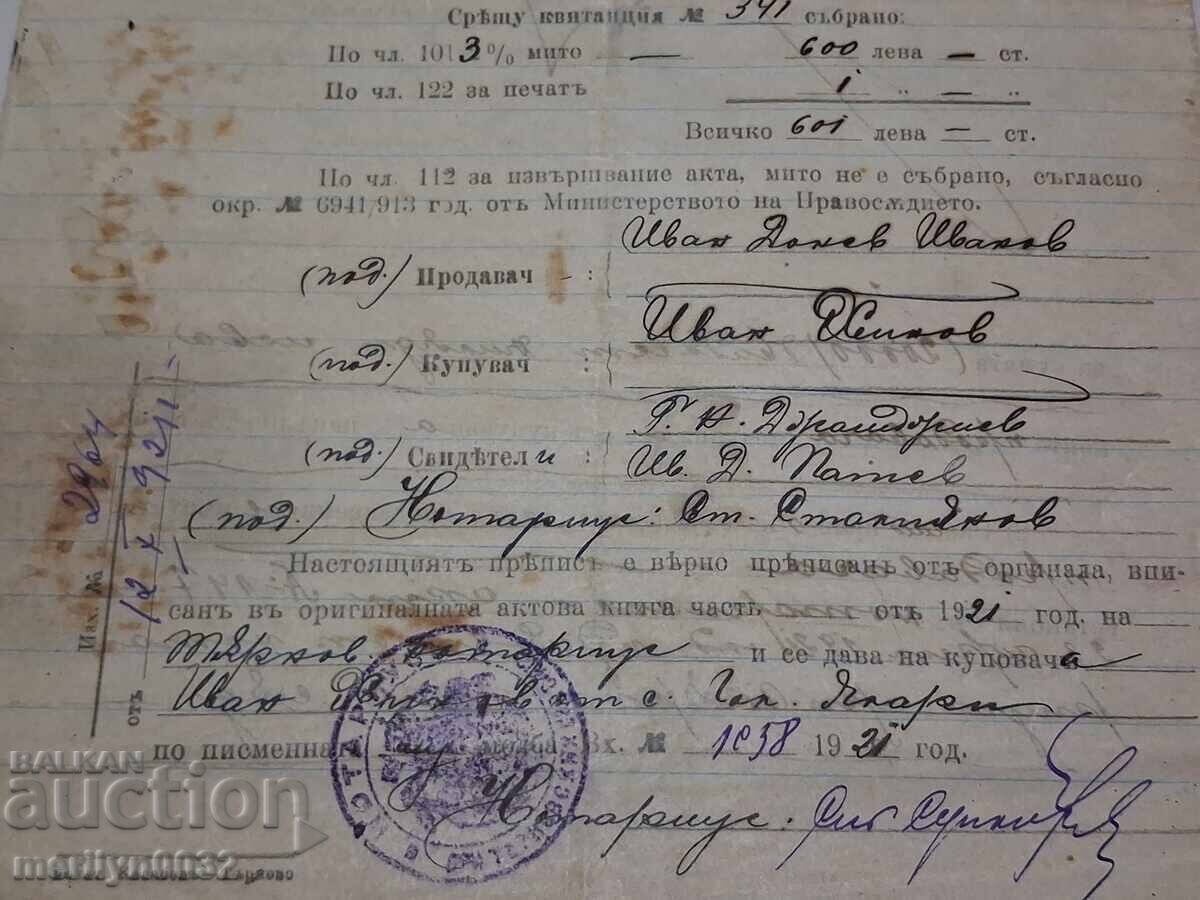 Срѣщу квитанция № 341 събрано:
По чл. 101 3% мито — 600 лева — ст.
По чл. 122 за печатъ 1 „ — „
Всичко 601 лева — ст.
По чл. 112 за извършвание акта, мито не е събрано, съгласно
окр. № 6941/913 год. отъ Министерството на Правосѫдието.
Иван Донев Иванов
(под.) Продавач :
Иван
(под.) Купувач :
Г. Н.
(под.) Свидѣтели :
Ив. Д.
(под.) Нотариус: Ст.
Настоящиятъ прѣписъ е вѣрно прѣписанъ отъ оргинала, впи-
санъ въ оригиналната актова книга часть отъ 1921 год. на
Търнов. нотариус и се дава на куповача
Иван от с. Гол. Яларе
по писменна му молба Вх. № 1058 1921 год.
Нотариус:
Изх. № 2964
отъ 12 X 921
BALKAN
auction
marilyn0032